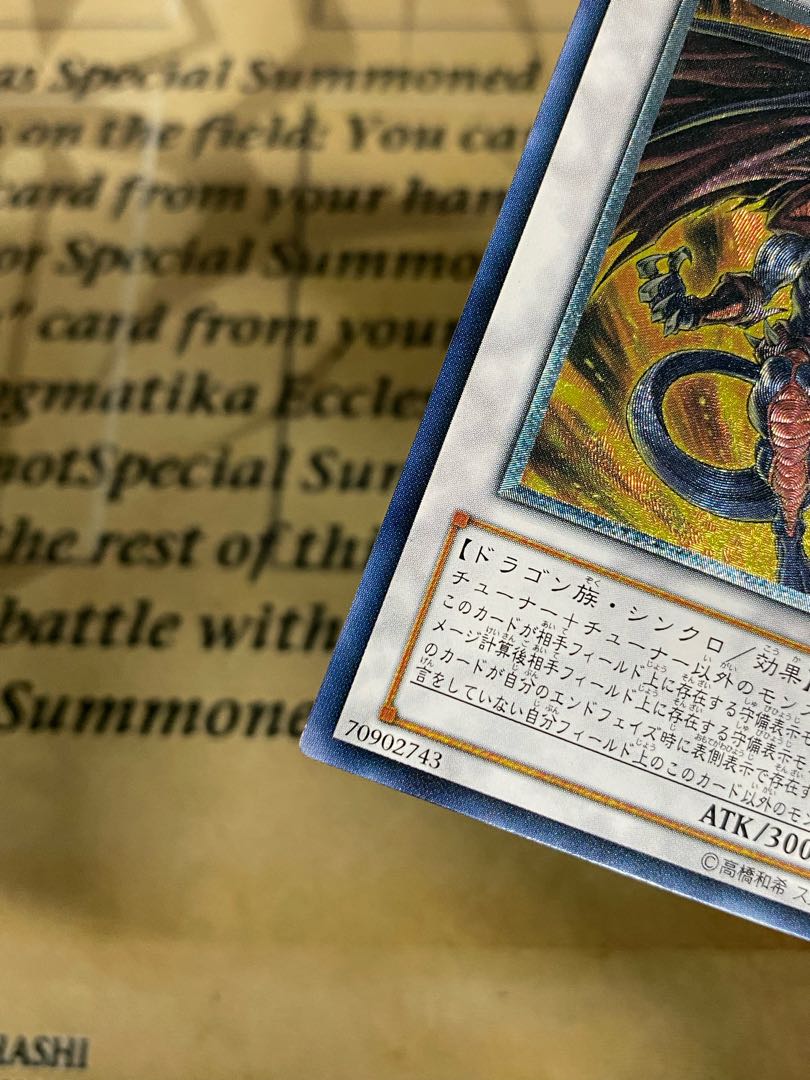 as Special Summoned
on the field: You ca
card from your han
or Special Summo
" card from your
gmatika Eccles
notSpecial Sum
the rest of thi
battle with
Summone
【ドラゴン族・シンクロ／効果】
チューナー＋チューナー以外のモンス
このカードが相手フィールド上に存在する守備表示モ
メージ計算後相手フィールド上に存在する守備表示モ
のカードが自分のエンドフェイズ時に表側表示で存在す
言をしていない自分フィールド上のこのカード以外のモン
70902743
ATK/300
©高橋和希 ス
HASHI